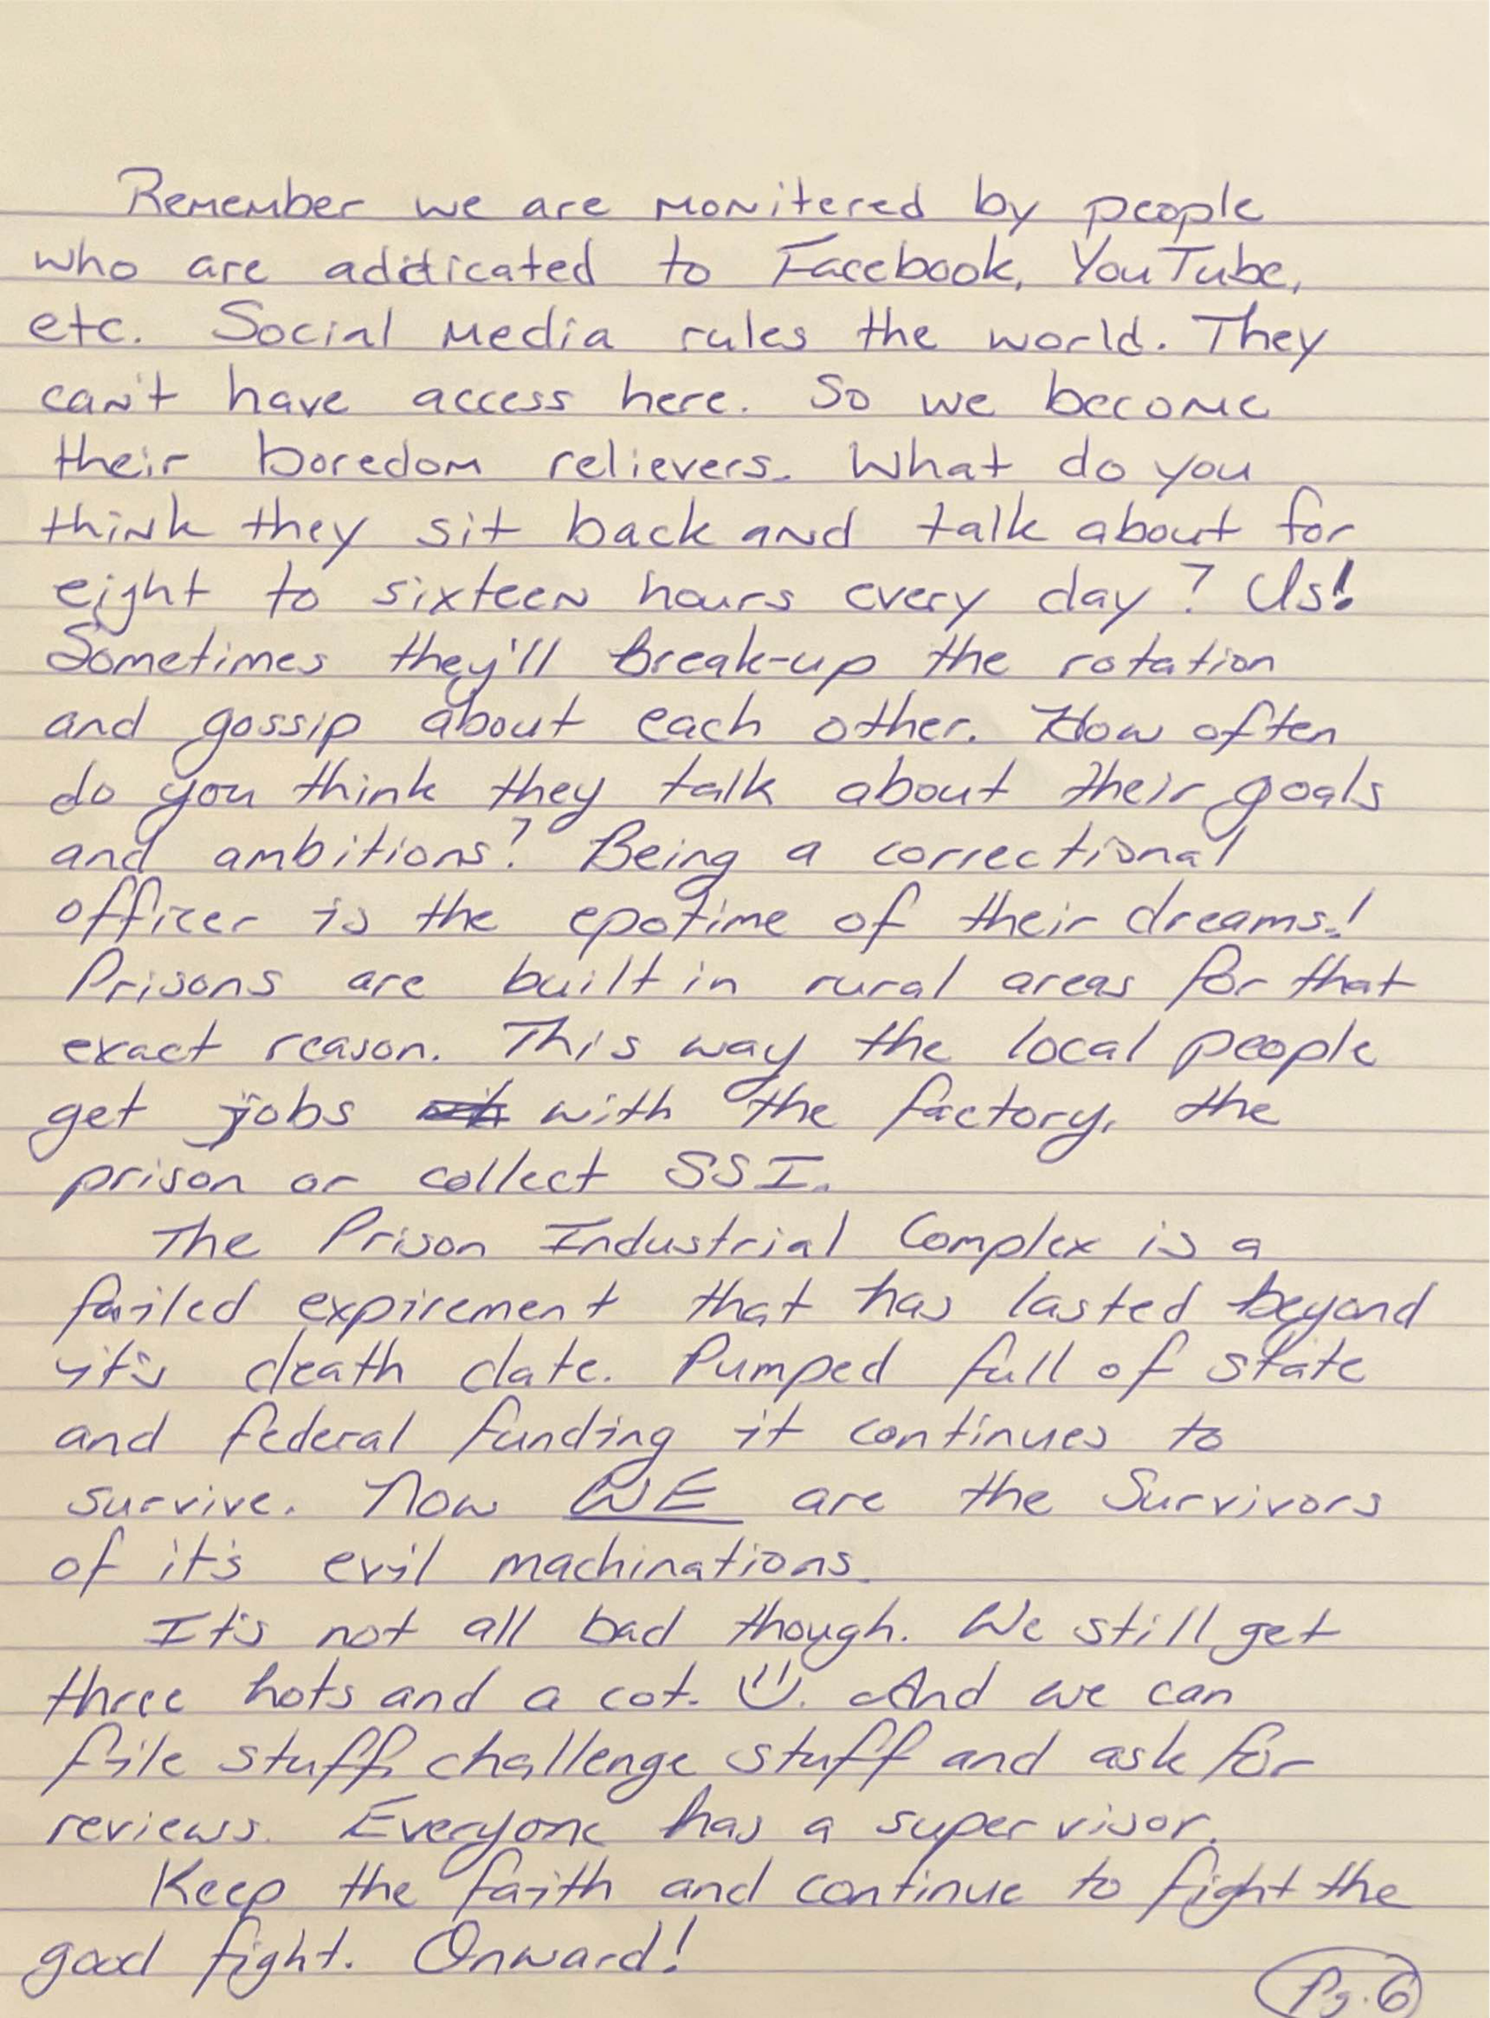 Remember we are monitered by people
who are addicated to Facebook, YouTube,
etc. Social media rules the world. They
can't have access here. So we become
their boredom relievers. What do you
think they sit back and talk about for
eight to sixteen hours every day? Us!
Sometimes they'll break-up the rotation
and gossip about each other. How often
do you think they talk about their goals
and ambitions? Being a correctional
officer is the epotime of their dreams!
Prisons are built in rural areas for that
exact reason. This way the local people
get jobs with the factory, the
prison or collect SSI.
The Prison Industrial Complex is a
failed expirement that has lasted beyond
it's death date. Pumped full of state
and federal funding it continues to
survive. Now WE are the Survivors
of it's evil machinations.
It's not all bad though. We still get
three hots and a cot. And we can
file stuff, challenge stuff and ask for
reviews. Everyone has a supervisor.
Keep the faith and continue to fight the
good fight. Onward!
Pg. 6